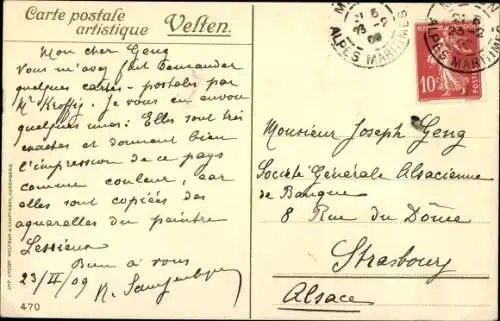 Carte postale
artistique
Velten.
Mon cher Geng
Vous m'avez fait demander
quelques cartes-postales par
Mr Kroffig. Je vous en envoie
quelques unes: Elles sont très
exactes et donnent bien
l'impression de ce pays
comme couleur, car
elles sont copiées des
aquarelles du peintre
Lessieux
Bien à vous
23/II 09
470
ALPES MARITIMES
10
Monsieur Joseph Geng
Société Générale Alsacienne
de Banque
8 Rue du Dôme
Strasbourg
Alsace